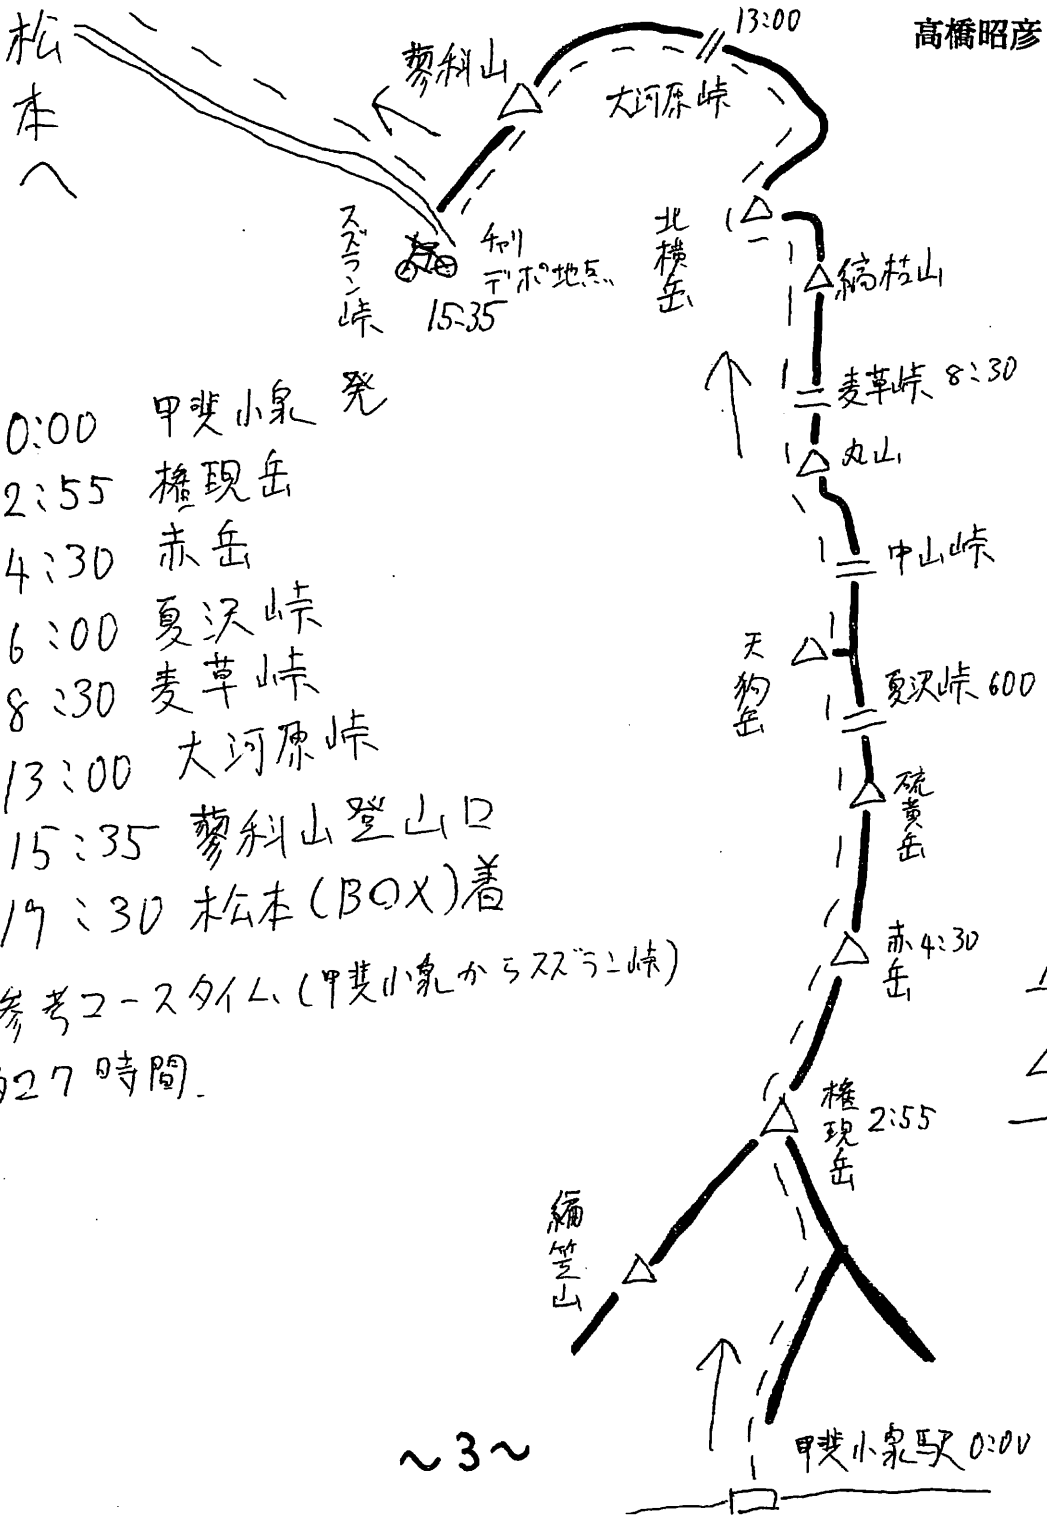 高橋昭彦
松本へ
13:00
蓼科山
大河原峠
スズラン峠
チャリ
デポ地点
15:35
北横岳
縞枯山
麦草峠 8:30
丸山
中山峠
天狗岳
夏沢峠 600
硫黄岳
赤岳 4:30
権現岳 2:55
編笠山
甲斐小泉駅 0:00
0:00 甲斐小泉 発
2:55 権現岳
4:30 赤岳
6:00 夏沢峠
8:30 麦草峠
13:00 大河原峠
15:35 蓼科山登山口
19:30 松本(BOX)着
参考コースタイム(甲斐小泉からスズラン峠)
27時間.
～3～